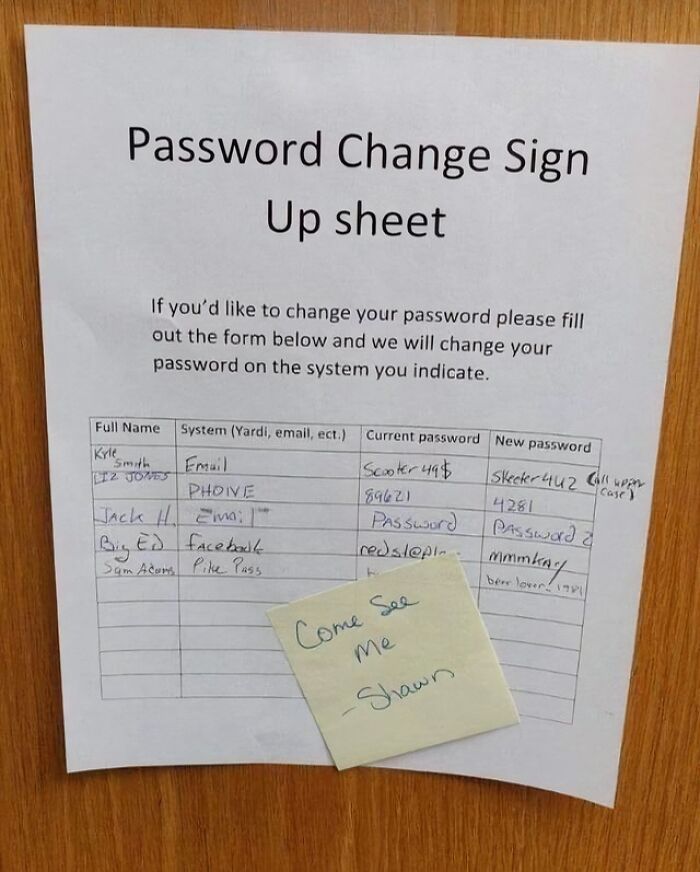 Password Change Sign
Up sheet
If you'd like to change your password please fill
out the form below and we will change your
password on the system you indicate.
Full Name System (Yardi, email, ect.) Current password New password
Kyle
Smith Email Scooter 49$ Skeeter4U2 (all upper
case)
LIZ JONES PHONE 89621 4281
JACK H. Email PASSword PASSword 2
Big Ed facebook mmmkay
Sam Adams Pike Pass beer lover. 1981
Come See
Me
- Shawn